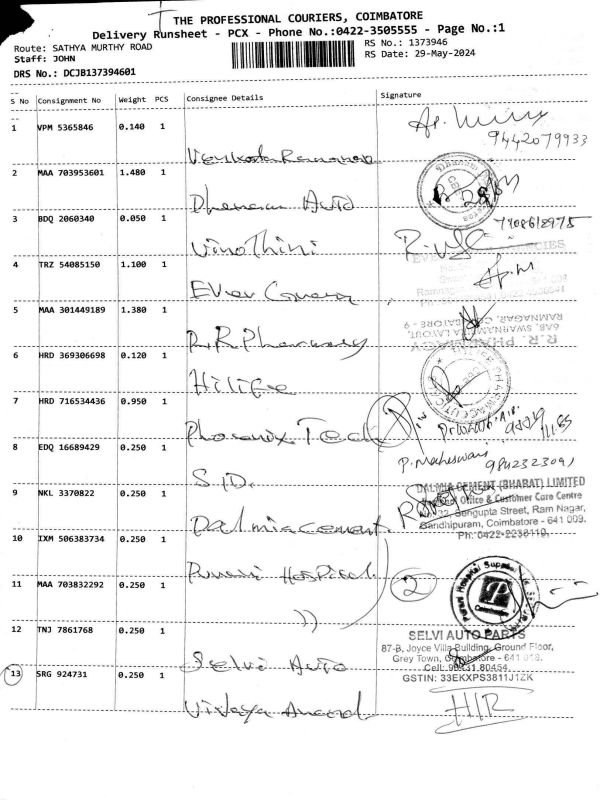 THE PROFESSIONAL COURIERS, COIMBATORE
Delivery Runsheet - PCX - Phone No.:0422-3505555 - Page No.:1
Route: SATHYA MURTHY ROAD
RS No.: 1373946
Staff: JOHN
RS Date: 29-May-2024
DRS No.: DCJB137394601
S No Consignment No Weight PCS Consignee Details Signature
1 VPM 5365846 0.140 1
9442079933
Venkata Ramanan
2 MAA 703953601 1.480 1
Dhanam Auto
3 BDQ 2060340 0.050 1
7708618975
Vinothini
4 TRZ 54085150 1.100 1
Ever
5 MAA 301449189 1.380 1
R.R Pharmacy
R.R. PHARMACY
6AB, SWARNAMBIKA LAYOUT,
RAMNAGAR, COIMBATORE - 9
6 HRD 369306698 0.120 1
Hilife
7 HRD 716534436 0.950 1
Phoenix Tech
8 EDQ 16689429 0.250 1
P. Maheswari 9842323091
S.D.
9 NKL 3370822 0.250 1
DALMIA CEMENT (BHARAT) LIMITED
Office & Customer Care Centre
Sengupta Street, Ram Nagar,
Gandhipuram, Coimbatore - 641 009.
Ph: 0422-2236110,
Dalmia cement
10 IXM 506383734 0.250 1
Punari Hospital
11 MAA 703832292 0.250 1
2
))
12 TNJ 7861768 0.250 1
SELVI AUTO PARTS
87-B, Joyce Villa Building, Ground Floor,
Grey Town, Coimbatore - 641 018.
Selvi Auto
Cell: 80454
GSTIN: 33EKXPS3811J1ZK
13 SRG 924731 0.250 1
Vijaya Anand
H/R